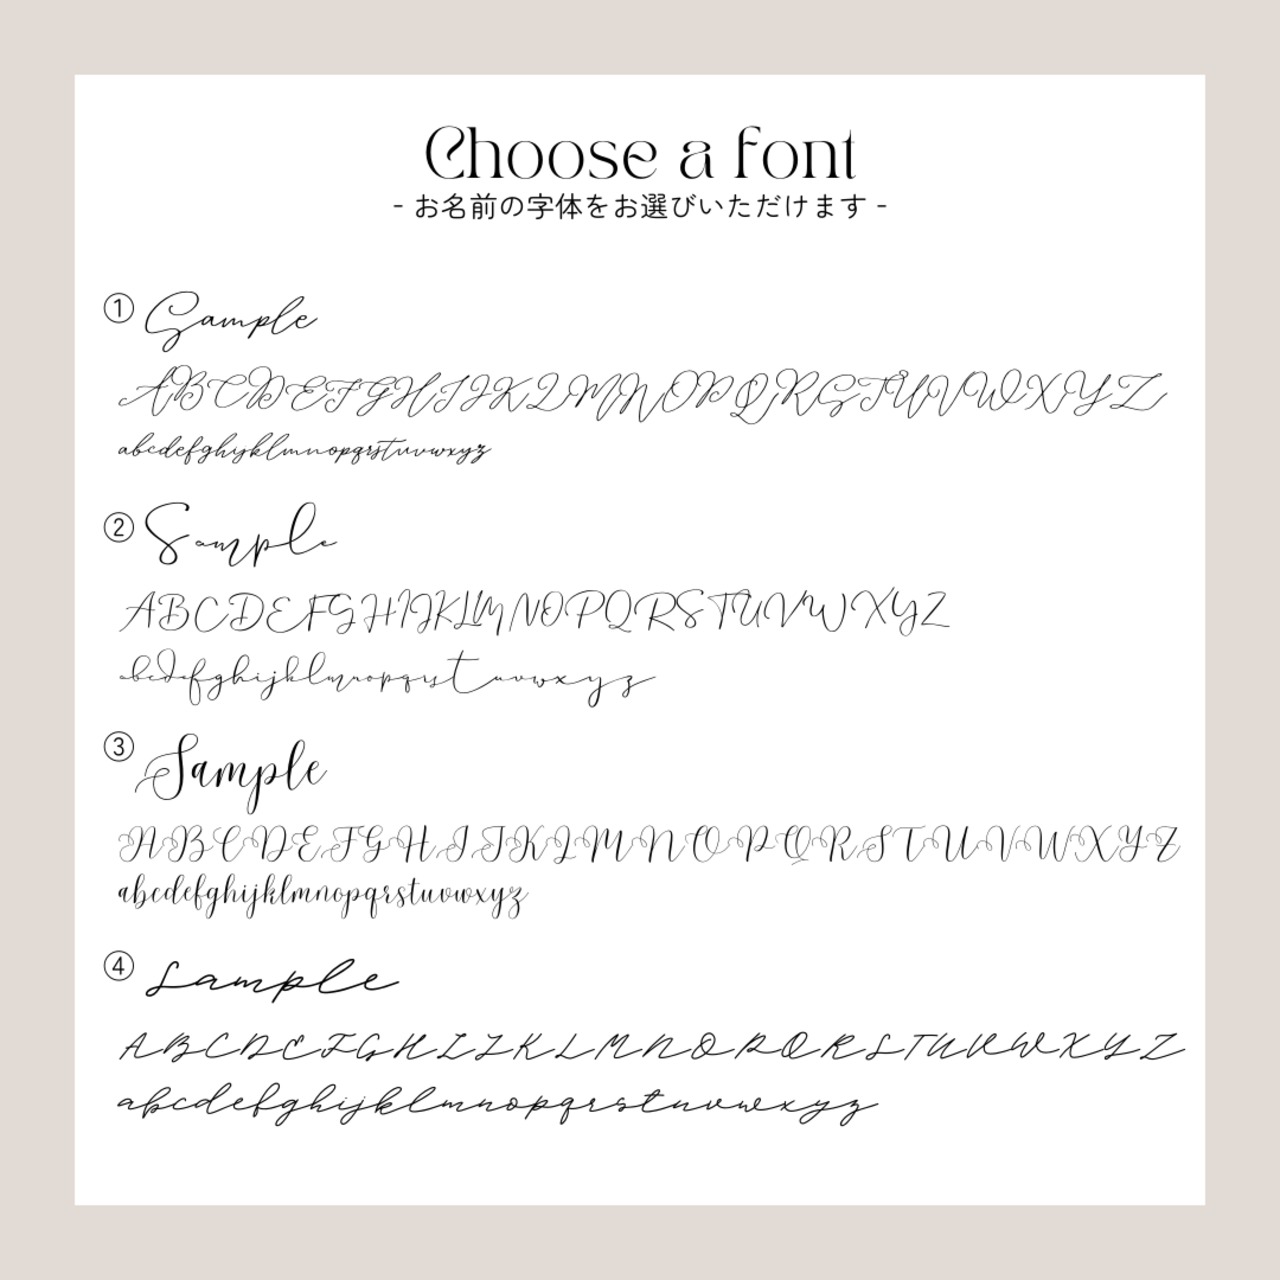 Choose a font
- お名前の字体をお選びいただけます -
① Sample
ABCDEFGHIJKLMNOPQRSTUVWXYZ
abcdefghijklmnopqrstuvwxyz
② Sample
ABCDEFGHIJKLMNOPQRSTUVWXYZ
abcdefghijklmnopqrstuvwxyz
③ Sample
ABCDEFGHIJKLMNOPQRSTUVWXYZ
abcdefghijklmnopqrstuvwxyz
④ Sample
ABCDEFGHIJKLMNOPQRSTUVWXYZ
abcdefghijklmnopqrstuvwxyz